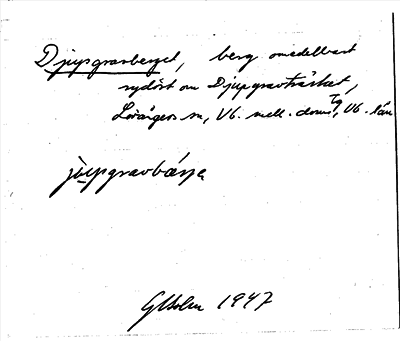 Djupgravberget, berg omedelbart
sydöst om Djupgravträsket,
Lövångers sn, Vb. mell. doms Tg, Vb. län
jùpgravbárje
GHolm 1947